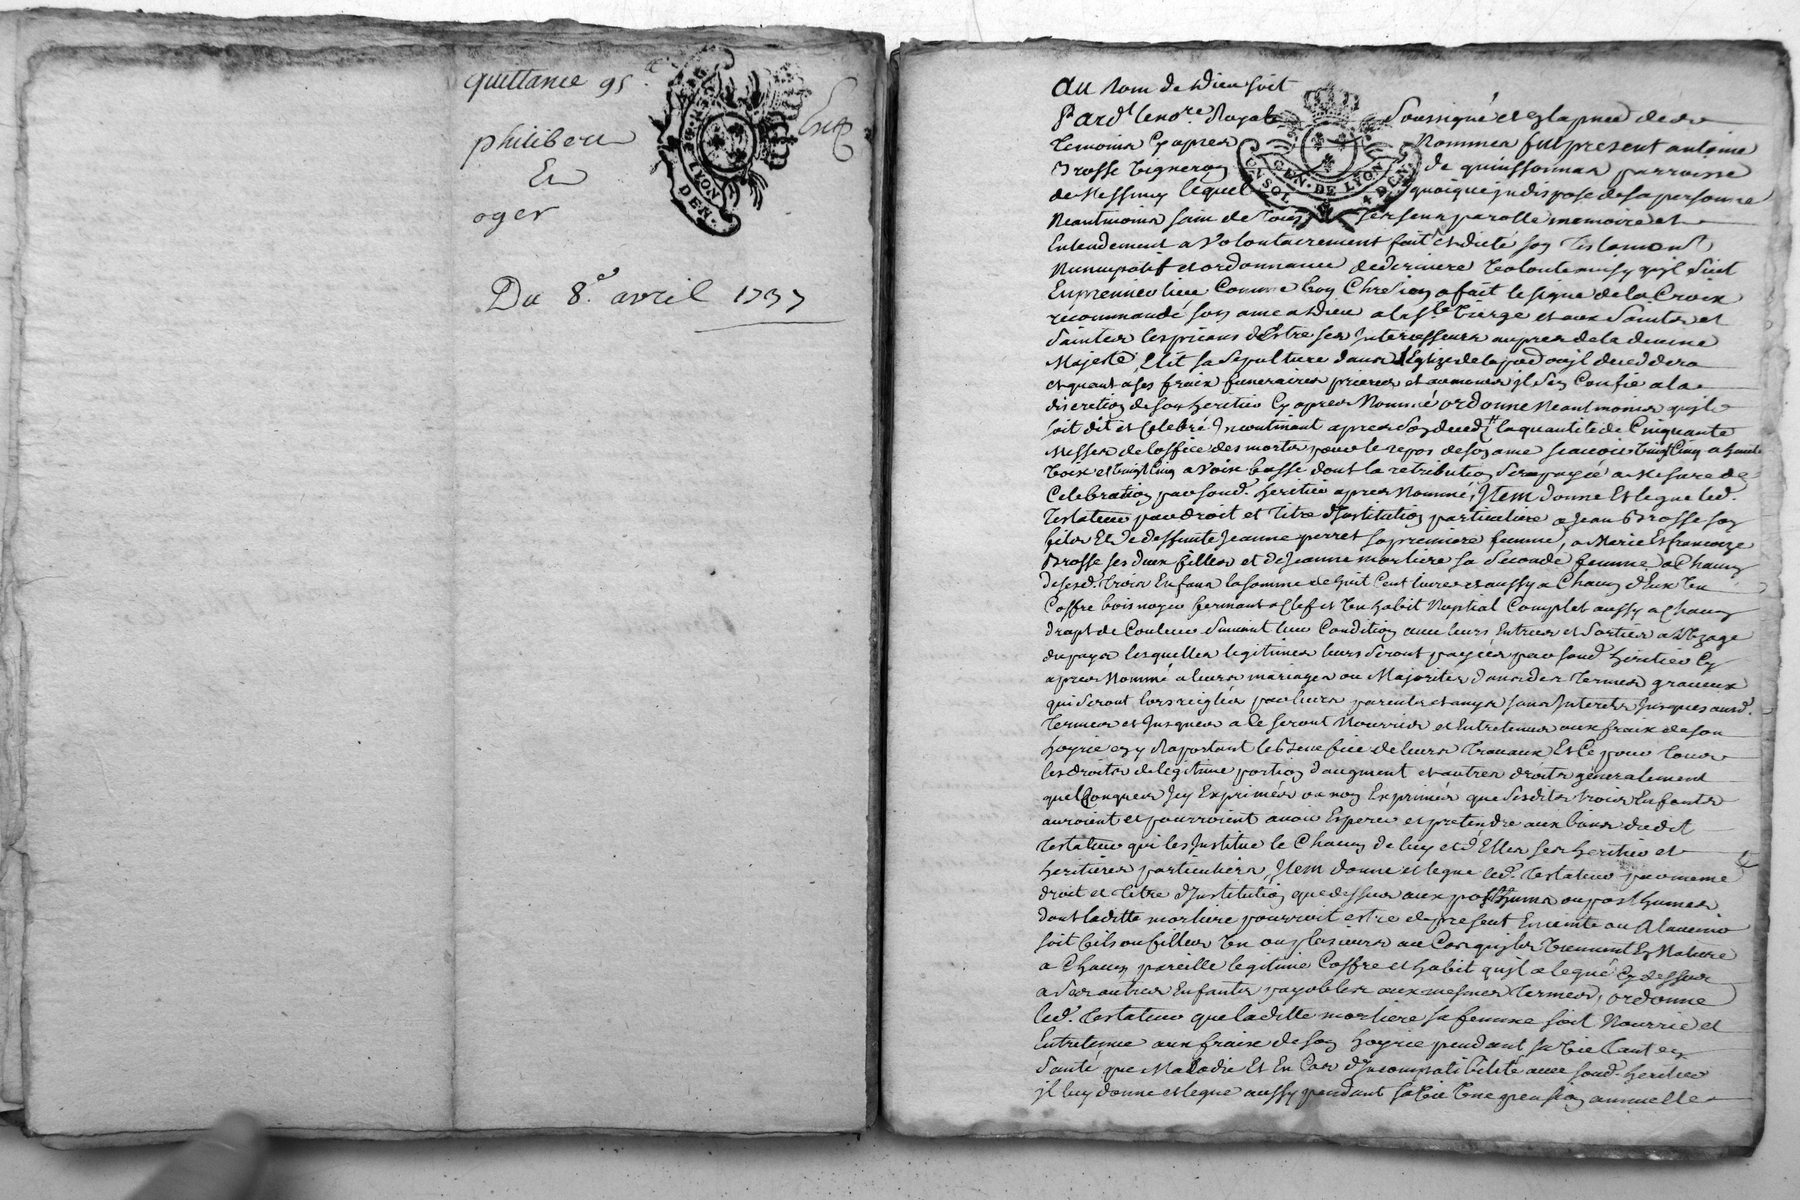 quittance 95 tt
philibert
Et
oger
Du 8e. avril 1737
GEN. DE LYON
DEN.
Au Nom de Dieu soit
Par dt le nore Royal soussigné et en la pnce des
temoins cy apres Nommes fut present antoine
Brosse Vigneron de quinssonnas parroisse
de Messimy lequel quoique indispose de sa personne
Neantmoins sain de tous ses sens parolle memoire et
Entendement a Volontairement fait et dicté son Testament
Nuncupatif et ordonnance de derniere Volonté ainsy qu'il suit
En premier lieu Comme bon Chretien a fait le signe de la Croix
récommandé son ame a Dieu a la Ste Vierge et aux Saints et
Saintes les priants d'Estre ses Intercesseurs aupres de la divine
Majesté, Elit sa Sepulture dans l'Eglize de la pad ou jl decedera
et quant a ses fraix funeraires prieres et aumones jl s'en Confie a la
discretion de son heritier Cy apres Nommé ordonne Neantmoins qu'jl
soit dit et Celebré Incontinant apres son deced la quantité de Cinquante
Messes de l'office des morts pour le repos de son ame scavoir Vingt Cinq a haute
Voix et Vingt Cinq a Voix basse dont la retribution sera payée a Mesure de
Celebration par sond. heritier apres Nommé, Item donne et legue led.
Testateur par droit et titre d'Institution particuliere a Jean Brosse son
fils Et de deffunte Jeanne perret sa premiere femme, a Marie Et françoize
Brosse ses deux filles et de Jeanne morliere sa Seconde femme a Chacun
desesd. trois Enfans la somme de huit Cent livres et aussy a Chacun d'Eux Un
Coffre bois noyer fermant a Clef et Un habit Nuptial Complet aussy a Chacun
drapt de Couleur Suivant leur Condition avec leurs Entrées et Sorties a l'Uzage
du pays lesquelles legitimes leurs seront payées par sond. heritier Cy
apres Nommé a leurs mariages ou Majorités dans des termes gracieux
qui seront lors reiglés par leurs parents et amys sans Interets Jusques auxd.
termes et Jusques a Ce seront Nourris et Entretenus aux fraix de son
hoyrie en y Raportant le Benefice de leurs travaux Et Ce pour tous
les droits de legitime portion d'augment et autres droits generalement
quelconques Jcy Exprimés ou non Exprimés que Sesdits trois Enfants
auroient et pourroient avoir Esperer et pretendre aux biens dudit
testateur qui les Institue le Chacun de luy et d'Elles ses heritier et
heritieres particuliers, Item donne et legue led. testateur par meme
droit et titre d'Institution que dessus aux posthume ou posthumes
dont laditte morliere pourroit estre de present Enceinte ou a l'avenir
soit fils ou filles Un ou plusieurs au Cas qu'ils Viennent En Nature
a Chacun pareille legitime Coffre et habit qu'jl a legué Cy dessus
a Ses autres Enfants payables aux mesmes termes, ordonne
led. testateur que laditte morliere sa femme soit Nourrie et
Entretenue aux fraix de son hoyrie pendant sa Vie tant en
Santé que Maladie Et En Cas d'Incompatibilité avec sond. heritier
jl luy donne et legue aussy pendant sa Vie Une pension annuelle